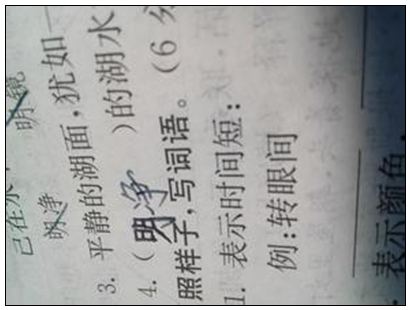 己在水
明镜
明净
3. 平静的湖面,犹如
4. (明净)的湖水
照样子,写词语。(6 分
1. 表示时间短:
例:转眼间
表示颜色